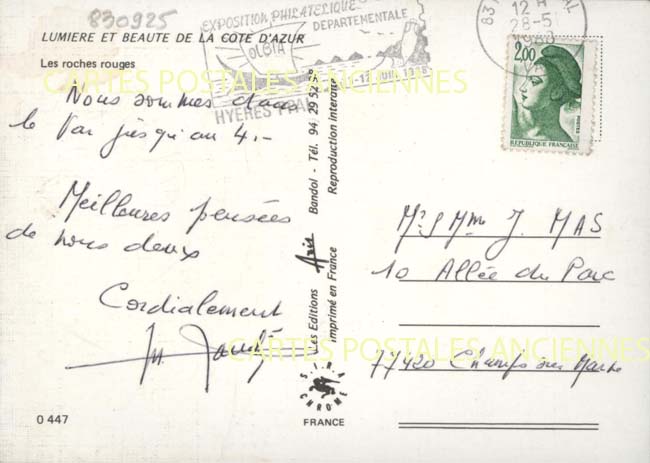 830925
EXPOSITION PHILATELIQUE
DEPARTEMENTALE
OLBIA
HYERES
83
12 H
28-5
1988
2,00
POSTES
REPUBLIQUE FRANÇAISE
LUMIERE ET BEAUTE DE LA COTE D'AZUR
Les roches rouges
CARTES POSTALES ANCIENNES
Nous sommes dans
le Var jusqu'au 4.-
Meilleures pensées
de nous deux
Cordialement
Les Editions Aris Bandol - Tél. 94 29 52 59
Imprimé en France Reproduction interdite
Mr & Mme J. MAS
10 Allée du Parc
77420 Champs sur Marne
CARTES POSTALES ANCIENNES
SIRA
CHROME
0 447
FRANCE